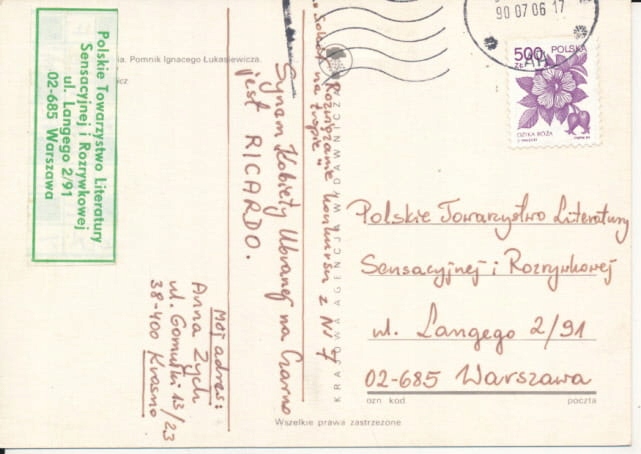 Polskie Towarzystwo Literatury
Sensacyjnej i Rozrywkowej
ul. Langego 2/91
02-685 Warszawa
Pomnik Ignacego Łukasiewicza.
Rozwiązanie konkursu z Nr 7
„Sokół na tropie”
Synem Kobiety Ubranej na Czarno
jest RICARDO.
Mój adres:
Anna Zych
ul. Gomułki 13/23
38-400 Krosno
KRAJOWA AGENCJA WYDAWNICZA
90 07 06 17
500 ZŁ
POLSKA
DZIKA RÓŻA
Polskie Towarzystwo Literatury
Sensacyjnej i Rozrywkowej
ul. Langego 2/91
02-685 Warszawa
ozn kod
poczta
Wszelkie prawa zastrzeżone